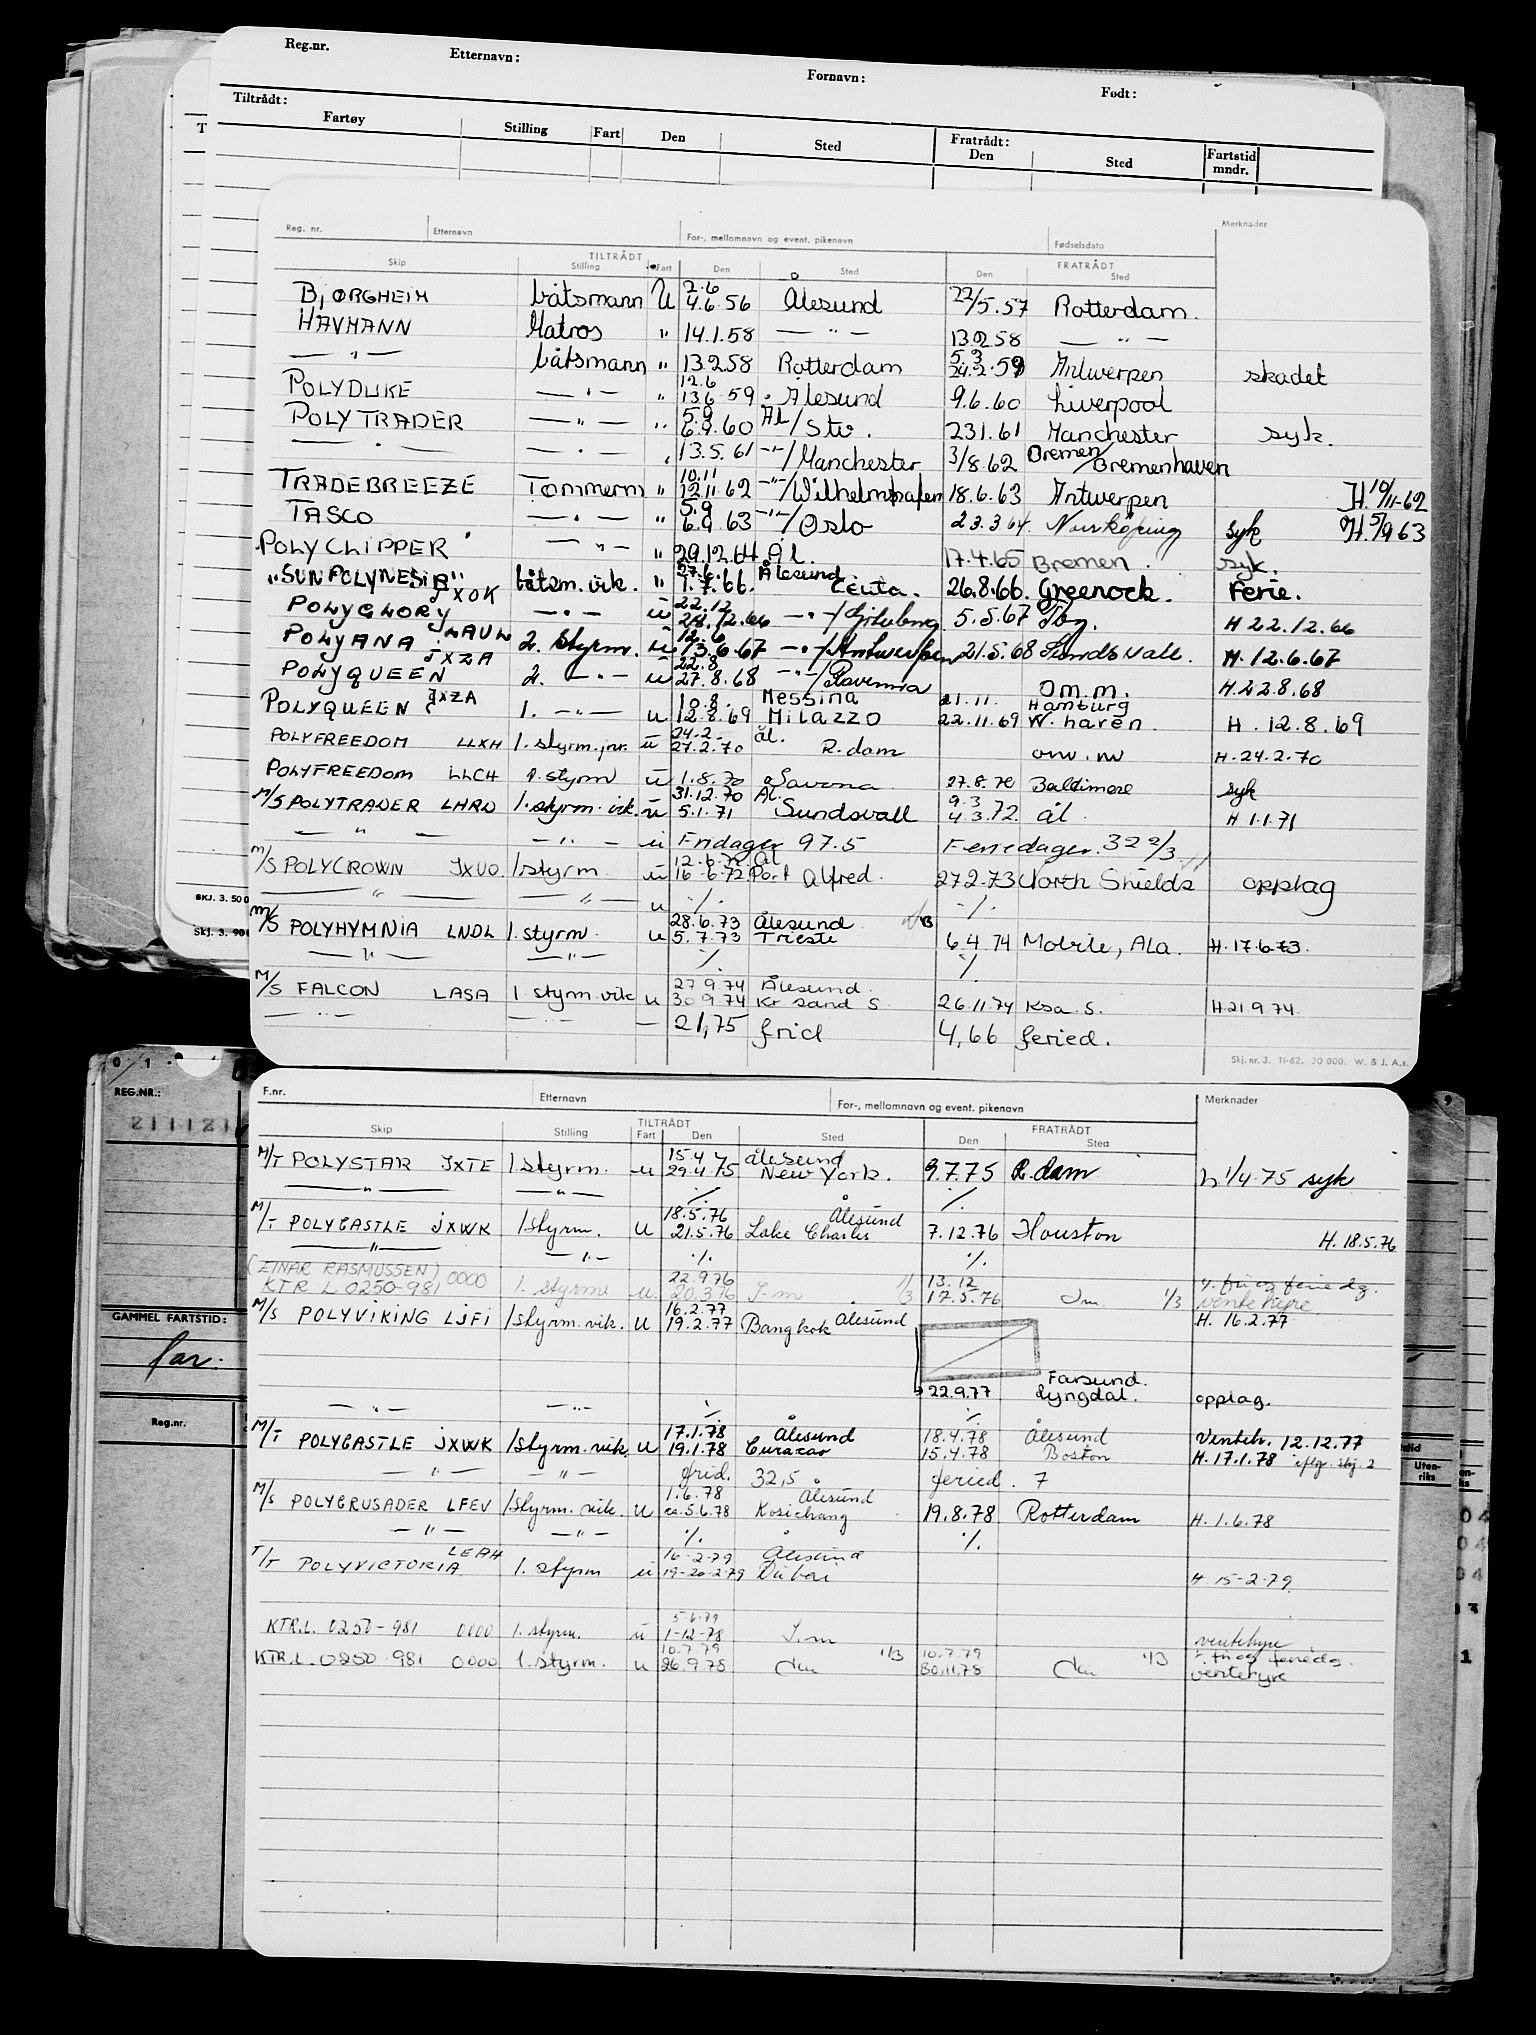 Reg.nr. Etternavn: Fornavn: Født:
Tiltrådt: Fratrådt:
Fartøy Stilling Fart Den Sted Den Sted Fartstid mndr.
Reg. nr. Etternavn For-, mellomnavn og event. pikenavn Fødselsdato Merknader
TILTRÅDT FRATRÅDT
Skip Stilling Fart Den Sted Den Sted
BJØRGHEIM båtsmann U 2.6 4.6.56 Ålesund 22/5.57 Rotterdam.
HAVMANN Matros " 14.1.58 — " — 13.2.58 — " —
— " — båtsmann " 13.2.58 Rotterdam 5.3 24.2.59 Antwerpen skadet
POLYDUKE — " — " 12.6 13.6.59 Ålesund 9.6.60 Liverpool
POLYTRADER — " — " 5.9 6.9.60 Ål/Stv. 23.1.61 Manchester syk.
— " — — " — " 13.5.61 —"—/Manchester 3/8.62 Bremen/Bremenhaven
TRADEBREEZE Tømmerm " 10.11 12.11.62 —"—/Wilhelmshafen 18.6.63 Antwerpen H.10/11-62
TASCO — " — " 5.9 6.9.63 —"—/Oslo 23.3.64. Norrköping syk H.5/9 63
POLYCLIPPER — " — " 29.12.64 Ål. 17.4.65 Bremen. syk.
"SUNPOLYNESIA" JXOK båtsm. vik. " 27.6. 1.7.66. Ålesund Ceuta. 26.8.66. Greenock. Ferie.
POLYGLORY LAUW — " — u 22.12 28.12.66 — " —/Göteborg 5.5.67 Tbg. H 22.12.66
POLYANA JXZA 2. styrm. u 12.6 13.6.67 — " —/Antwerpen 21.5.68 Sundsvall. H. 12.6.67
POLYQUEEN 2. — " — u 22.8 27.8.68 — " —/Ravenna om.m. H.22.8.68
POLYQUEEN JXZA 1. — " — u 10.8. 12.8.69 Messina Milazzo 21.11. 22.11.69 Hamburg W.haven H. 12.8.69
POLYFREEDOM LLXH 1. styrm. jnr. u 24.2 27.2.70 ål. R.dam om.m H.24.2.70
POLYFREEDOM LLCH 1. styrm u 1.8.70 Savona 27.8.70 Baltimore syk
M/S POLYTRADER LHRD 1. styrm. vik. u 31.12.70 5.1.71 Ål. Sundsvall 9.3 4.3.72 ål. H 1.1.71
— " — — " — u Fridager 97.5 Feriedager. 32 2/3
M/S POLYCROWN JXUO 1. styrm. u 12.6.72 16.6.72 Ål Port Alfred. 27.2.73 North Shields opplag
— " — — " — u ·/. ·/.
M/S POLYHYMNIA LNDL 1. styrm. u 28.6.73 5.7.73 Ålesund Trieste 6.4.74 Mobile, Ala. H.17.6.73.
— " — — " — ·/. ·/.
M/S FALCON LASA 1. styrm. vik u 27.9.74 30.9.74 Ålesund. Kr.sand S 26.11.74 Ksa. S. H.21.9.74.
— " — — " — — 21,75 frid 4,66 feried.
Skj. nr. 3. 11-62. 30 000. W. & J. A.s.
SKJ. 3. 50 0
Skj. 3. 90 0
REG.NR.:
GAMMEL FARTSTID:
far.
Reg.nr.
Uten-riks
F.nr. Etternavn For-, mellomnavn og event. pikenavn Merknader
TILTRÅDT FRATRÅDT
Skip Stilling Fart Den Sted Den Sted
M/T POLYSTAR JXTE 1. styrm. u 15.4 29.4.75 Ålesund New York. 9.7.75 R.dam h 1/4.75 syk
— " — — " — ·/. ·/.
M/T POLYCASTLE JXWK 1 styrm. u 18.5.76 21.5.76 Ålesund Lake Charles 7.12.76 Houston H. 18.5.76
— " — — " — ·/. ·/.
(EINAR RASMUSSEN) KTR L 0250-981 0000 1. styrm u 22.9.76 20.3.76 I.m 1/3 13.12 17.5.76 Im 1/3 v. fri og feriedg. ventehyre
M/S POLYVIKING LJFI 1 styrm. vik. u 16.2.77 19.2.77 Bangkok Ålesund H. 16.2.77
22.9.77 Farsund. Lyngdal. opplag.
— " — — " — ·/. ·/.
M/T POLYCASTLE JXWK 1 styrm. vik. u 17.1.78 19.1.78 Ålesund Curacao 18.4.78 15.4.78 Ålesund Boston Venteh. 12.12.77 H. 17.1.78 iflg. skj. 2
— " — — " — frid. 32,5 feried. 7
M/S POLYCRUSADER LFEV 1 styrm. vik. u 1.6.78 ca.5.6.78 Ålesund Kosichang 19.8.78 Rotterdam H. 1.6.78
— " — — " — ·/. ·/.
T/T POLYVICTORIA LEAH 1. styrm u 16-2-79 19-20-2-79 Ålesund Dubai H 15-2-79
KTR.L. 0250-981 0000 1. styrm. u 5-6-79 1-12-78 I.m ventehyre
KTR.L. 0250 981 0000 1. styrm. u 10.7.79 26.9.78 Im 1/3 10.7.79 30.11.78 Im 1/3 v. fri og feriedg. ventehyre